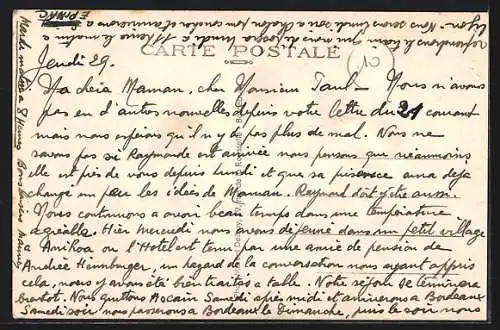 CARTE POSTALE
Jeudi 29.
Ma chère Maman, cher Monsieur Paul - Nous n'avons
pas eu d'autres nouvelles depuis votre lettre du 21 courant
mais nous espérons qu'il n'y a pas plus de mal. Nous ne
savons pas si Raymonde est arrivée nous pensons que néanmoins
elle est près de vous depuis lundi et que sa présence aura déjà
changé un peu les idées de Maman. Raymond doit y être aussi.
Nous continuons a avoir beau temps dans une température
agréable. Hier mercredi nous avons déjeuné dans un petit village
a Ainhoa ou l'Hotel est tenu par une amie de pension de
Andrée Hennburger, un hazard de la conversation nous ayant appris
cela, nous y avons été bien traités a table. Notre séjour se terminera
bientot. Nous quittons Ascain Samedi après midi et arriverons a Bordeaux
Samedi soir nous passerons a Bordeaux le Dimanche, puis le soir nous
Lyon. Nous serons lundi soir a
Mardi matin a 8 heures Bons baisers